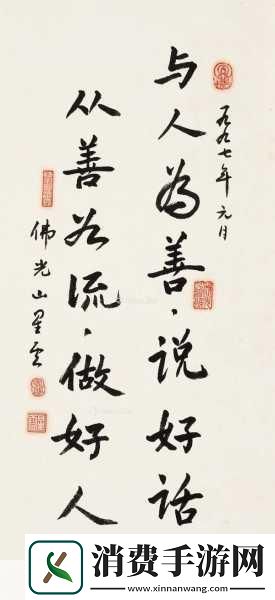 一九九七年元月
与人為善，说好话
从善如流，做好人
佛光山星云
消费手游网
www.xinnanwang.com